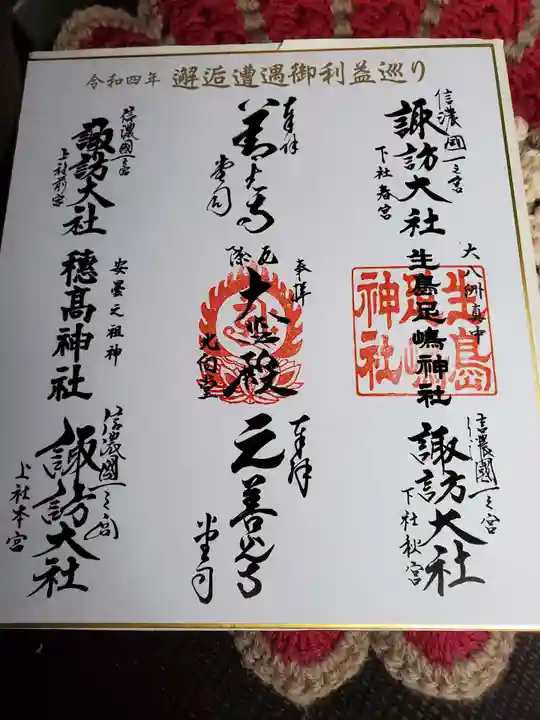 令和四年 邂逅遭遇御利益巡り
信濃國一之宮
諏訪大社
下社春宮
大八洲真中
生島足嶋神社
生島足嶋神社
信濃國一之宮
諏訪大社
下社秋宮
奉拝
善光寺
堂司
奉拝
厄除
大悲殿
北向堂
奉拝
元善光寺
堂司
信濃國一宮
諏訪大社
上社前宮
安曇元祖神
穂髙神社
信濃國一之宮
諏訪大社
上社本宮